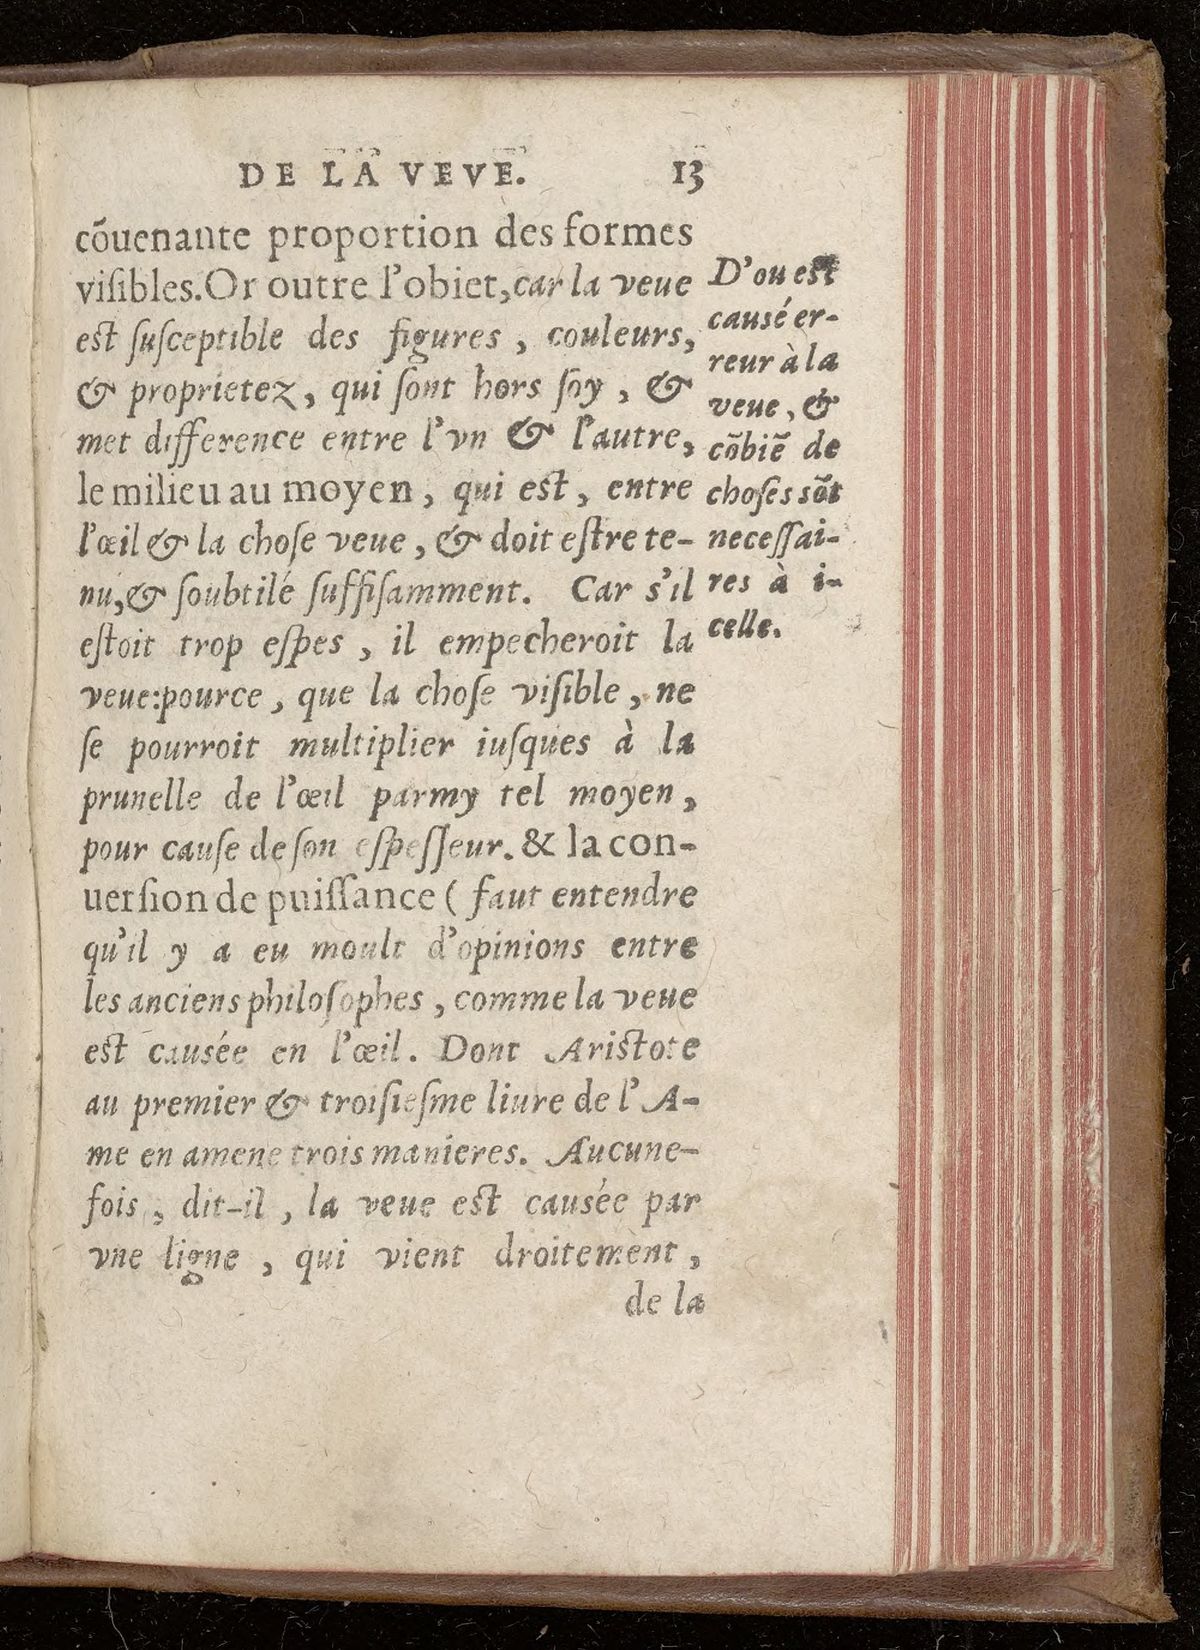 DE LA VEVE. 13
cõuenante proportion des formes
viſibles. Or outre l'obiet, car la veue
est ſuſceptible des figures, couleurs,
& proprietez, qui ſont hors ſoy, &
met difference entre l'vn & l'autre,
le milieu au moyen, qui est, entre
l'œil & la choſe veue, & doit eſtre te-
nu, & ſoubtilé ſuffiſamment. Car s'il
eſtoit trop eſpes, il empecheroit la
veue: pource, que la choſe viſible, ne
ſe pourroit multiplier iuſques à la
prunelle de l'œil parmy tel moyen,
pour cause de ſon eſpeſſeur. & la con-
uerſion de puiſſance ( faut entendre
qu'il y a eu moult d'opinions entre
les anciens philoſophes, comme la veue
est causée en l'œil. Dont Aristote
au premier & troiſieſme liure de l'A-
me en amene trois manieres. Aucune-
fois, dit-il, la veue est causée par
vne ligne, qui vient droitement,
de la
D'ou est
causé er-
reur à la
veue, &
cõbiẽ de
choſes sõt
neceſſai-
res à i-
celle.